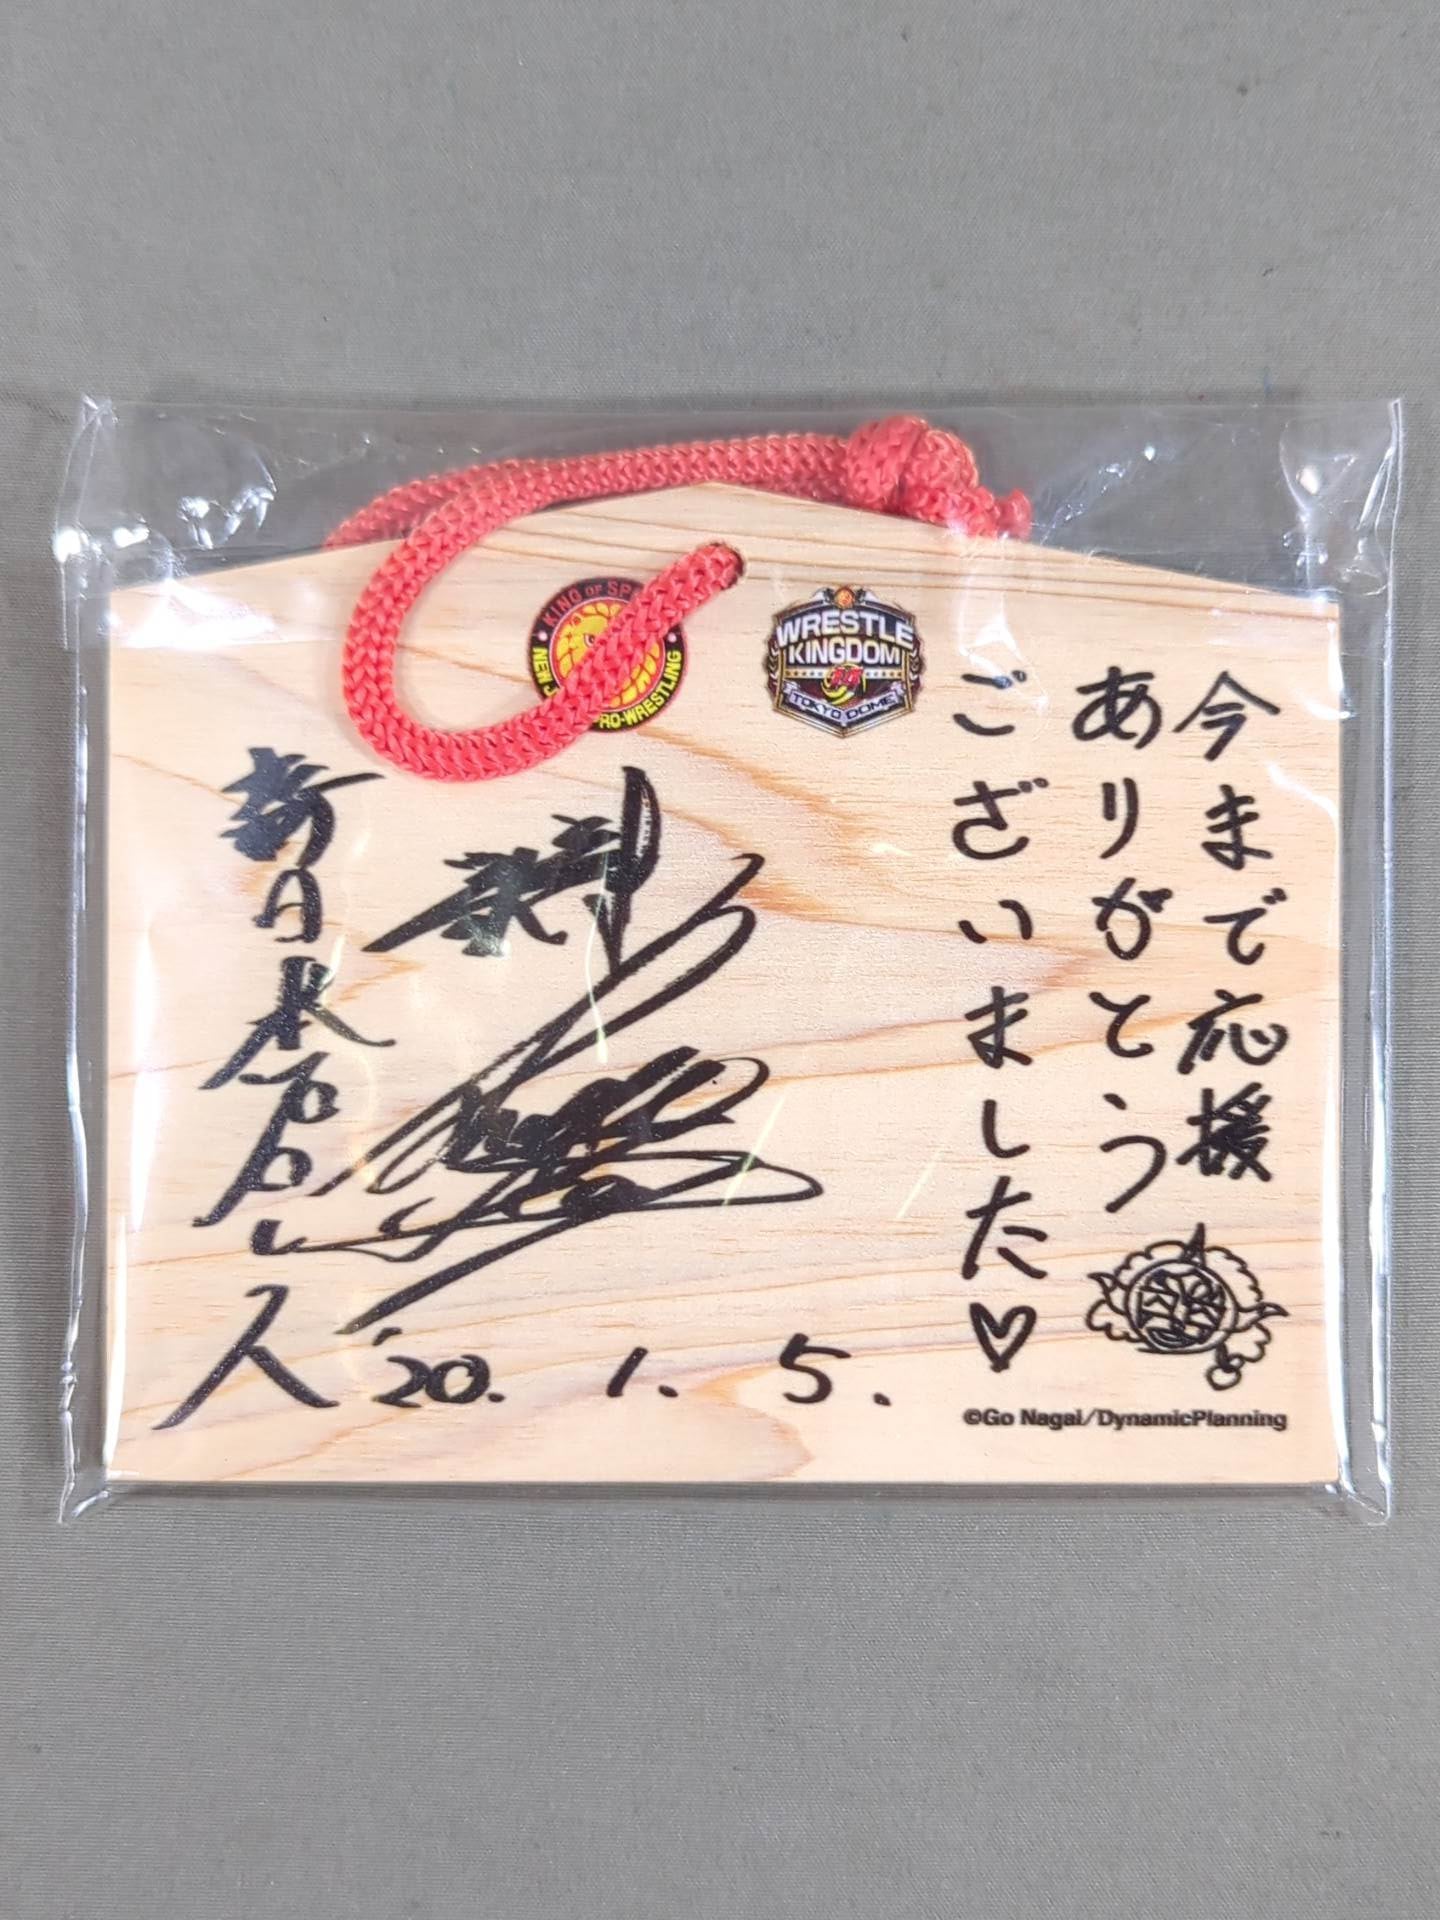 KING OF SP
NEW J
RO-WRESTLING
WRESTLE
KINGDOM
TOKYO DOME
今まで応援
ありがとう
ございました♡
新日本プロレス
'20. 1. 5.
©Go Nagai/DynamicPlanning